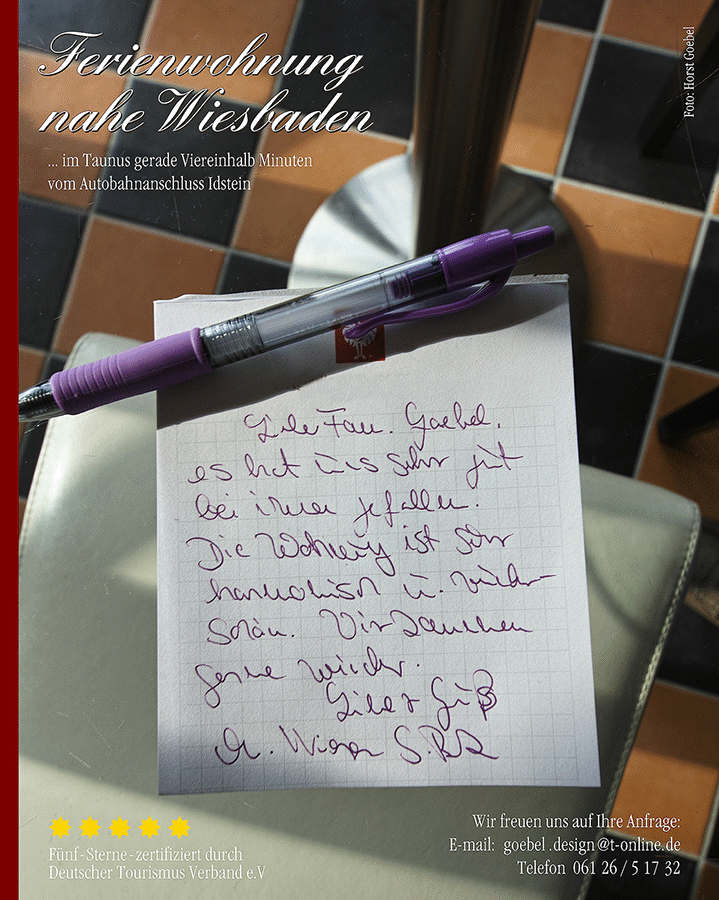 Ferienwohnung
nahe Wiesbaden
... im Taunus gerade Viereinhalb Minuten
vom Autobahnanschluss Idstein
Foto: Horst Goebel
Liebe Frau Goebel,
es hat uns sehr gut
bei ihnen gefallen.
Die Wohnung ist sehr
harmonisch u. wunder-
schön. Wir kommen
gerne wieder.
Lieber Gruß
Fünf-Sterne-zertifiziert durch
Deutscher Tourismus Verband e.V
Wir freuen uns auf Ihre Anfrage:
E-mail: goebel.design@t-online.de
Telefon 061 26 / 5 17 32